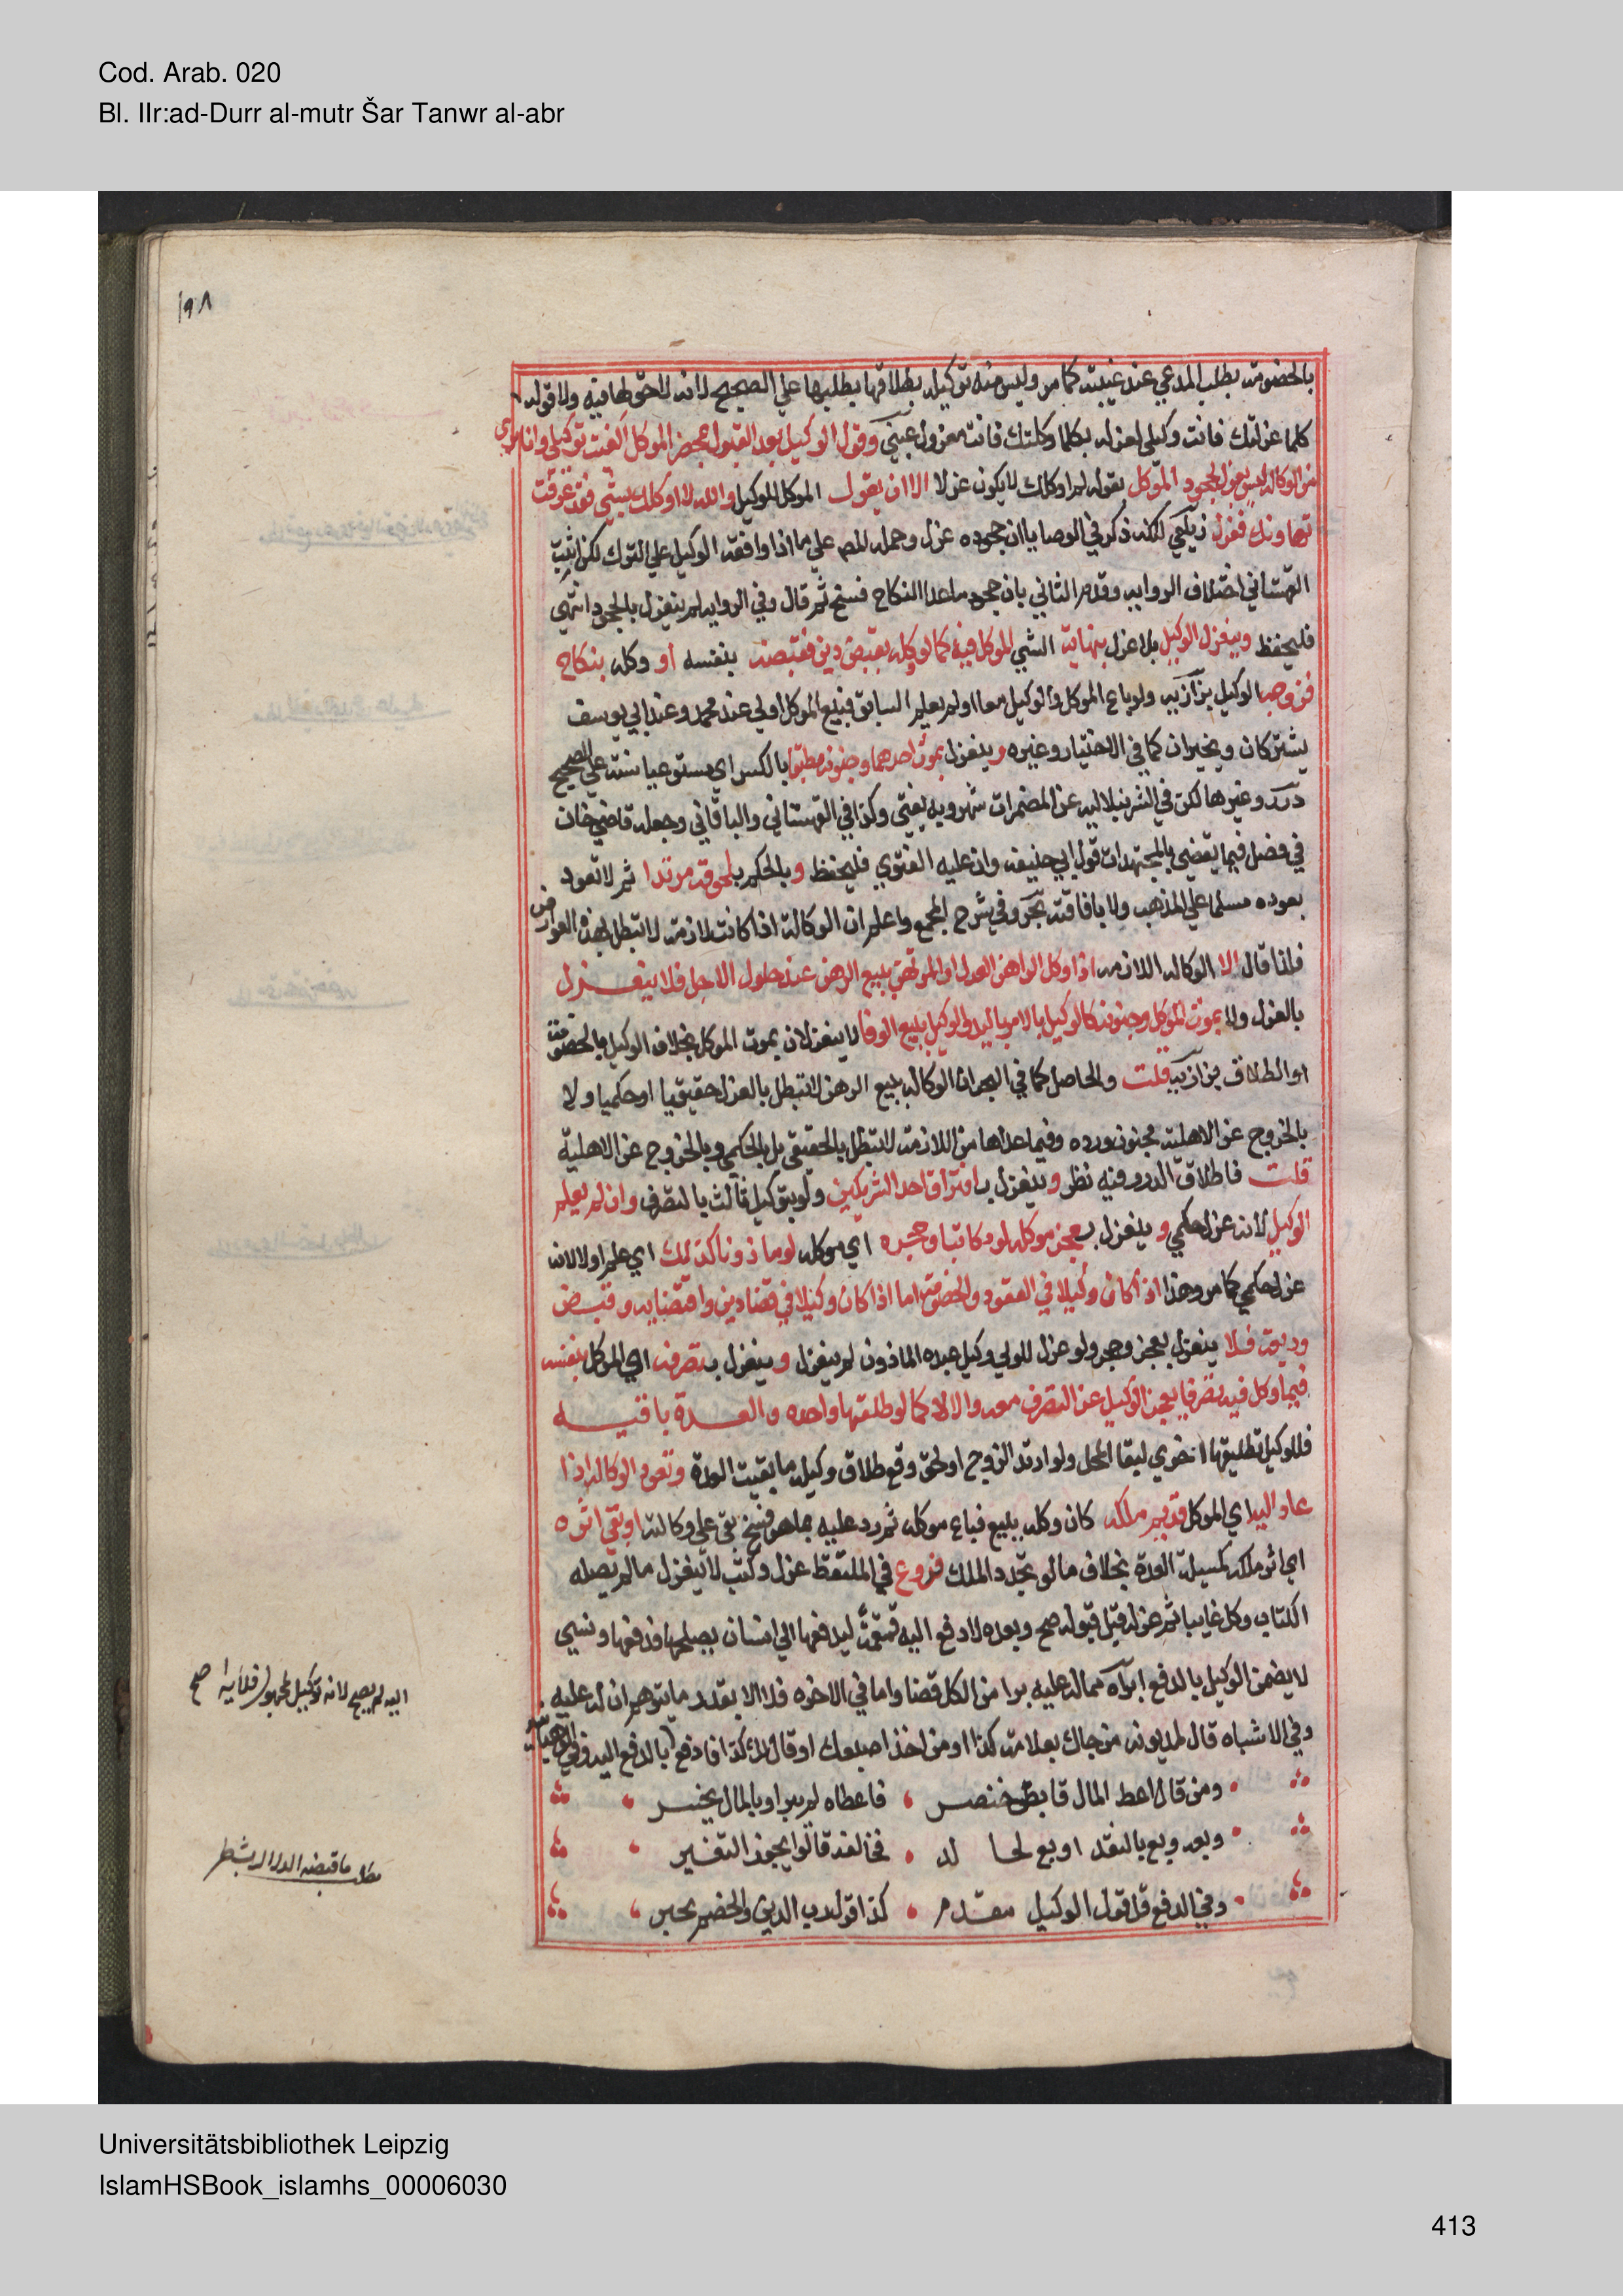 Cod. Arab. 020
Bl. IIr:ad-Durr al-mutr Šar Tanwr al-abr
١٩٨
بالخصومة بطلب المدعي عند غيبته كما مر وليس منه توكيله بطلاقها بطلبها علي الصحيح لانه لاحق لها فيه ولا قوله
كلما عزلتك فانت وكيلي لعزله بكلما وكلتك فانت معزول عيني وقول الوكيل بعد القبول بمحضر الموكل الغيت توكيلي وانا بري
من الوكالة ليس بعزل كجحود الموكل بقوله لم اوكلك لا يكون عزلا الا ان يقول الموكل للوكيل والله لا اوكلك بشي فقد عرفت
تهاونك فعزل زيلعي لكنه ذكر في الوصايا ان جحوده عزل وحمله المص علي ما اذا وافقه الوكيل علي الترك لكن اثبت
القهستاني اختلاف الرواية وقدم الثاني بان جحود ماعدا النكاح فسخ ثم قال وفي الرواية لم ينعزل بالجحود انتهي
فليحفظ وينعزل الوكيل بلا عزل بنهاية الشي الموكل فيه كما لو وكله بقبض دين فقبضه بنفسه او وكله بنكاح
فزوجه الوكيل بزازيه ولو باع الموكل والوكيل معا او لم يعلم السابق فبيع الموكل اولي عند محمد وعند ابي يوسف
يشتركان ويخيران كما في الاختيار وغيره وينعزل بموت احدهما وجنونه مطبقا بالكسر اي مستوعبا سنة علي الصحيح
درر وغيرها لكن في الشرنبلاليه عن المضمرات شهر وبه يفتي وكذا في القهستاني والباقاني وجعله قاضي خان
في فصل فيما يقضي بالمجتهدات قول ابي حنيفه وان عليه الفتوي فليحفظ وبالحكم بلحوقه مرتدا ثم لا تعود
بعوده مسلما علي المذهب ولا بافاقته بحر وفي شرح المجمع واعلم ان الوكالة اذا كانت لازمة لا تبطل بهذه العوارض
فلذا قال الا الوكاله اللازمه اذا وكل الراهن العدل او المرتهن ببيع الرهن عند حلول الاجل فلا ينعزل
بالعزل ولا بموت الموكل وجنونه كالوكيل بالامر باليد والوكيل ببيع الوفا لا ينعزلان بموت الموكل بخلاف الوكيل بالخصومة
او الطلاق بزازيه قلت والحاصل كما في البحر ان الوكاله ببيع الرهن لا تبطل بالعزل حقيقيا او حكميا ولا
بالخروج عن الاهلية بجنون ورده وفيما عداها من اللازمة لا تبطل بالحقيقي بل بالحكمي وبالخروج عن الاهلية
قلت فاطلاق الدرر فيه نظر وينعزل بافتراق احد الشريكين ولو بتوكيل ثالث بالتصرف وان لم يعلم
الوكيل لانه عزل حكمي وينعزل بعجز موكله لو مكاتبا وحجره اي موكله لو ماذونا كذلك اي علم اولا لانه
عزل حكمي كما مر وهذا اذا كان وكيلا في العقود والخصومة اما اذا كان وكيلا في قضا دين واقتضايه وقبض
وديعة فلا ينعزل بعجز وحجر ولو عزل المولي وكيل عبده الماذون لم ينعزل وينعزل بتصرفه اي الموكل بنفسه
فيما وكل فيه تصرفا يعجز الوكيل عن التصرف معه والا لا كما لو طلقها واحده والعدة باقيه
فللوكيل تطليقها اخري لبقا المحل ولو ارتد الزوج او لحق وقع طلاق وكيله ما بقيت العدة وتعود الوكالة اذا
عاد اليه اي الموكل قديم ملكه كان وكله ببيع فباع موكله ثم رد عليه بما هو فسخ بقي علي وكالته او بقي اثره
اي اثر ملكه كمسيلة العدة بخلاف ما لو تجدد الملك فروع في الملتقط عزل وكتب لا ينعزل مالم يصله
الكتاب وكل غايبا ثم عزله قبل قبوله صح وبعده لا دفع اليه قمقمة ليدفعها الي انسان يصلحها فدفعها ونسي
لا يضمن الوكيل بالدفع ابراه مماله عليه برا من الكل قضا واما في الاخره فلا الا بقدر ما يتوهم ان له عليه
وفي الاشباه قال لمديونه من جاك بعلامة كذا او من اخذ اصبعك او قال لك كذا فادفع بالدفع اليه وفي الوهبانية
ومن قال اعط المال قابض خنصر فاعطاه لم يبرا وبالمال يخسر
وبعه وبع بالنقد او بع لخالد فخالفه قالوا يجوز التغير
وفي الدفع قل قول الوكيل مقدم كذا قول رب الدين والخصم يجبر
اليه لم يصح لانه توكيل مجهول فلا يبرا صح
مطلب ما قبضه الدلال
Universitätsbibliothek Leipzig
IslamHSBook_islamhs_00006030
413